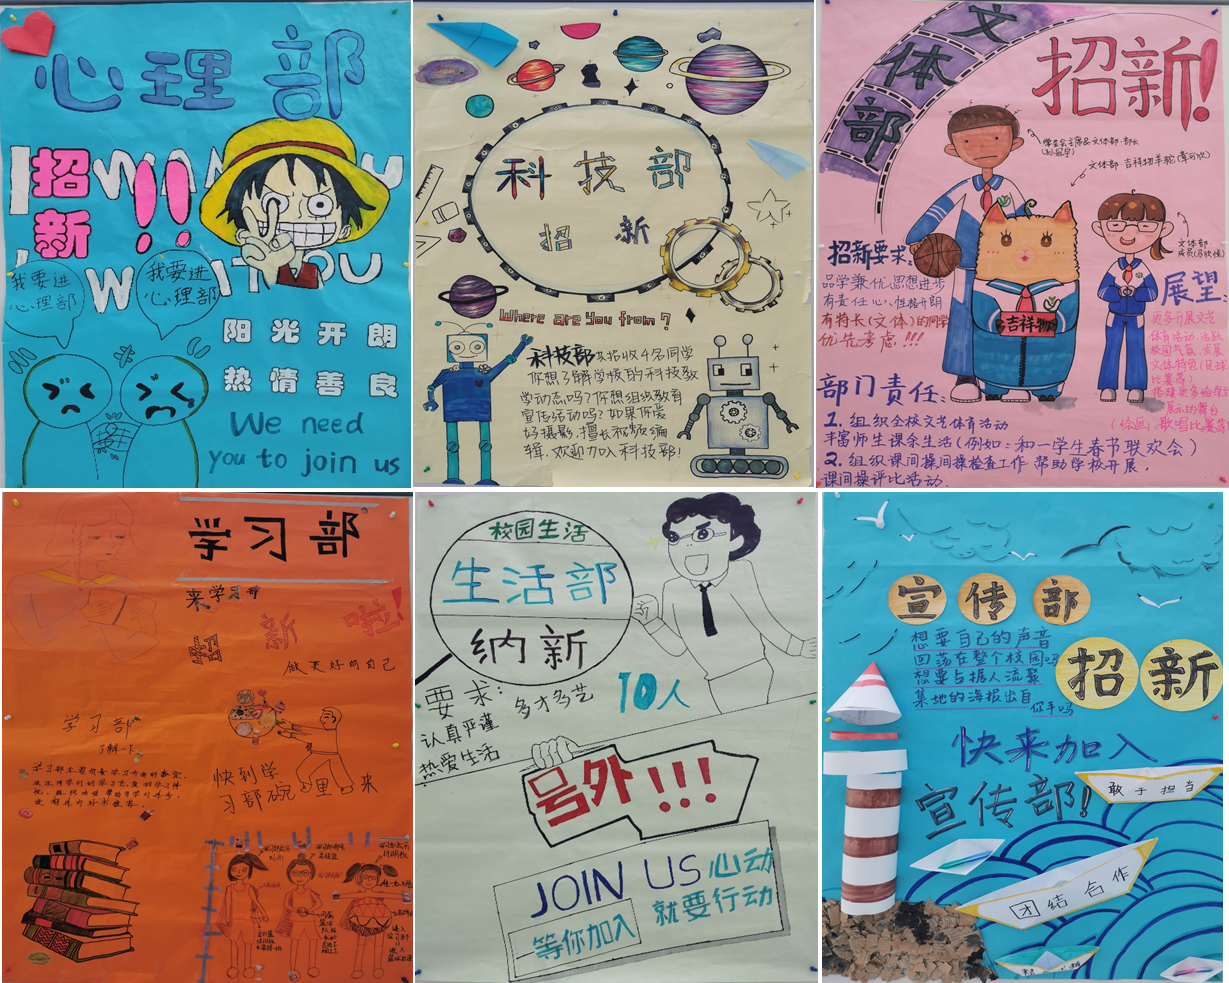 心理部
招新!!
I WANT YOU
我要进
心理部
我要进
心理部
阳光开朗
热情善良
We need
you to join us
科技部
招新
Where are you from?
科技部共招收4名同学
你想了解学校的科技教
学动态吗?你想组织教育
宣传活动吗?如果你爱
好摄影,擅长视频编
辑,欢迎加入科技部!
文体部
招新!
文体部
成员
招新要求:
品学兼优,思想进步
有责任心,性格开朗
有特长(文体)的同学
优先考虑!!!
吉祥物
展望
更多开展文艺
体育活动,活跃
校园气氛,发展
文体特色(足球
比赛等)
搭建更多给学生
展示的舞台
(绘画,歌唱比赛等)
部门责任:
1. 组织全校文艺体育活动
丰富师生课余生活(例如:和一学生春节联欢会)
2. 组织课间操间操检查工作 帮助学校开展.
课间操评比活动.
学习部
来学习部
招新啦!
做更好的自己
学习部
了解一下
快到学
习部碗里来
校园生活
生活部
纳新
要求:
多才多艺
认真严谨
热爱生活
10人
号外!!!
JOIN US 心动
就要行动
等你加入
宣传部
想要自己的声音
回荡在整个校园吗
想要占据人流聚
集地的海报出自
你手吗
招新
快来加入
宣传部!
敢于担当
团结合作